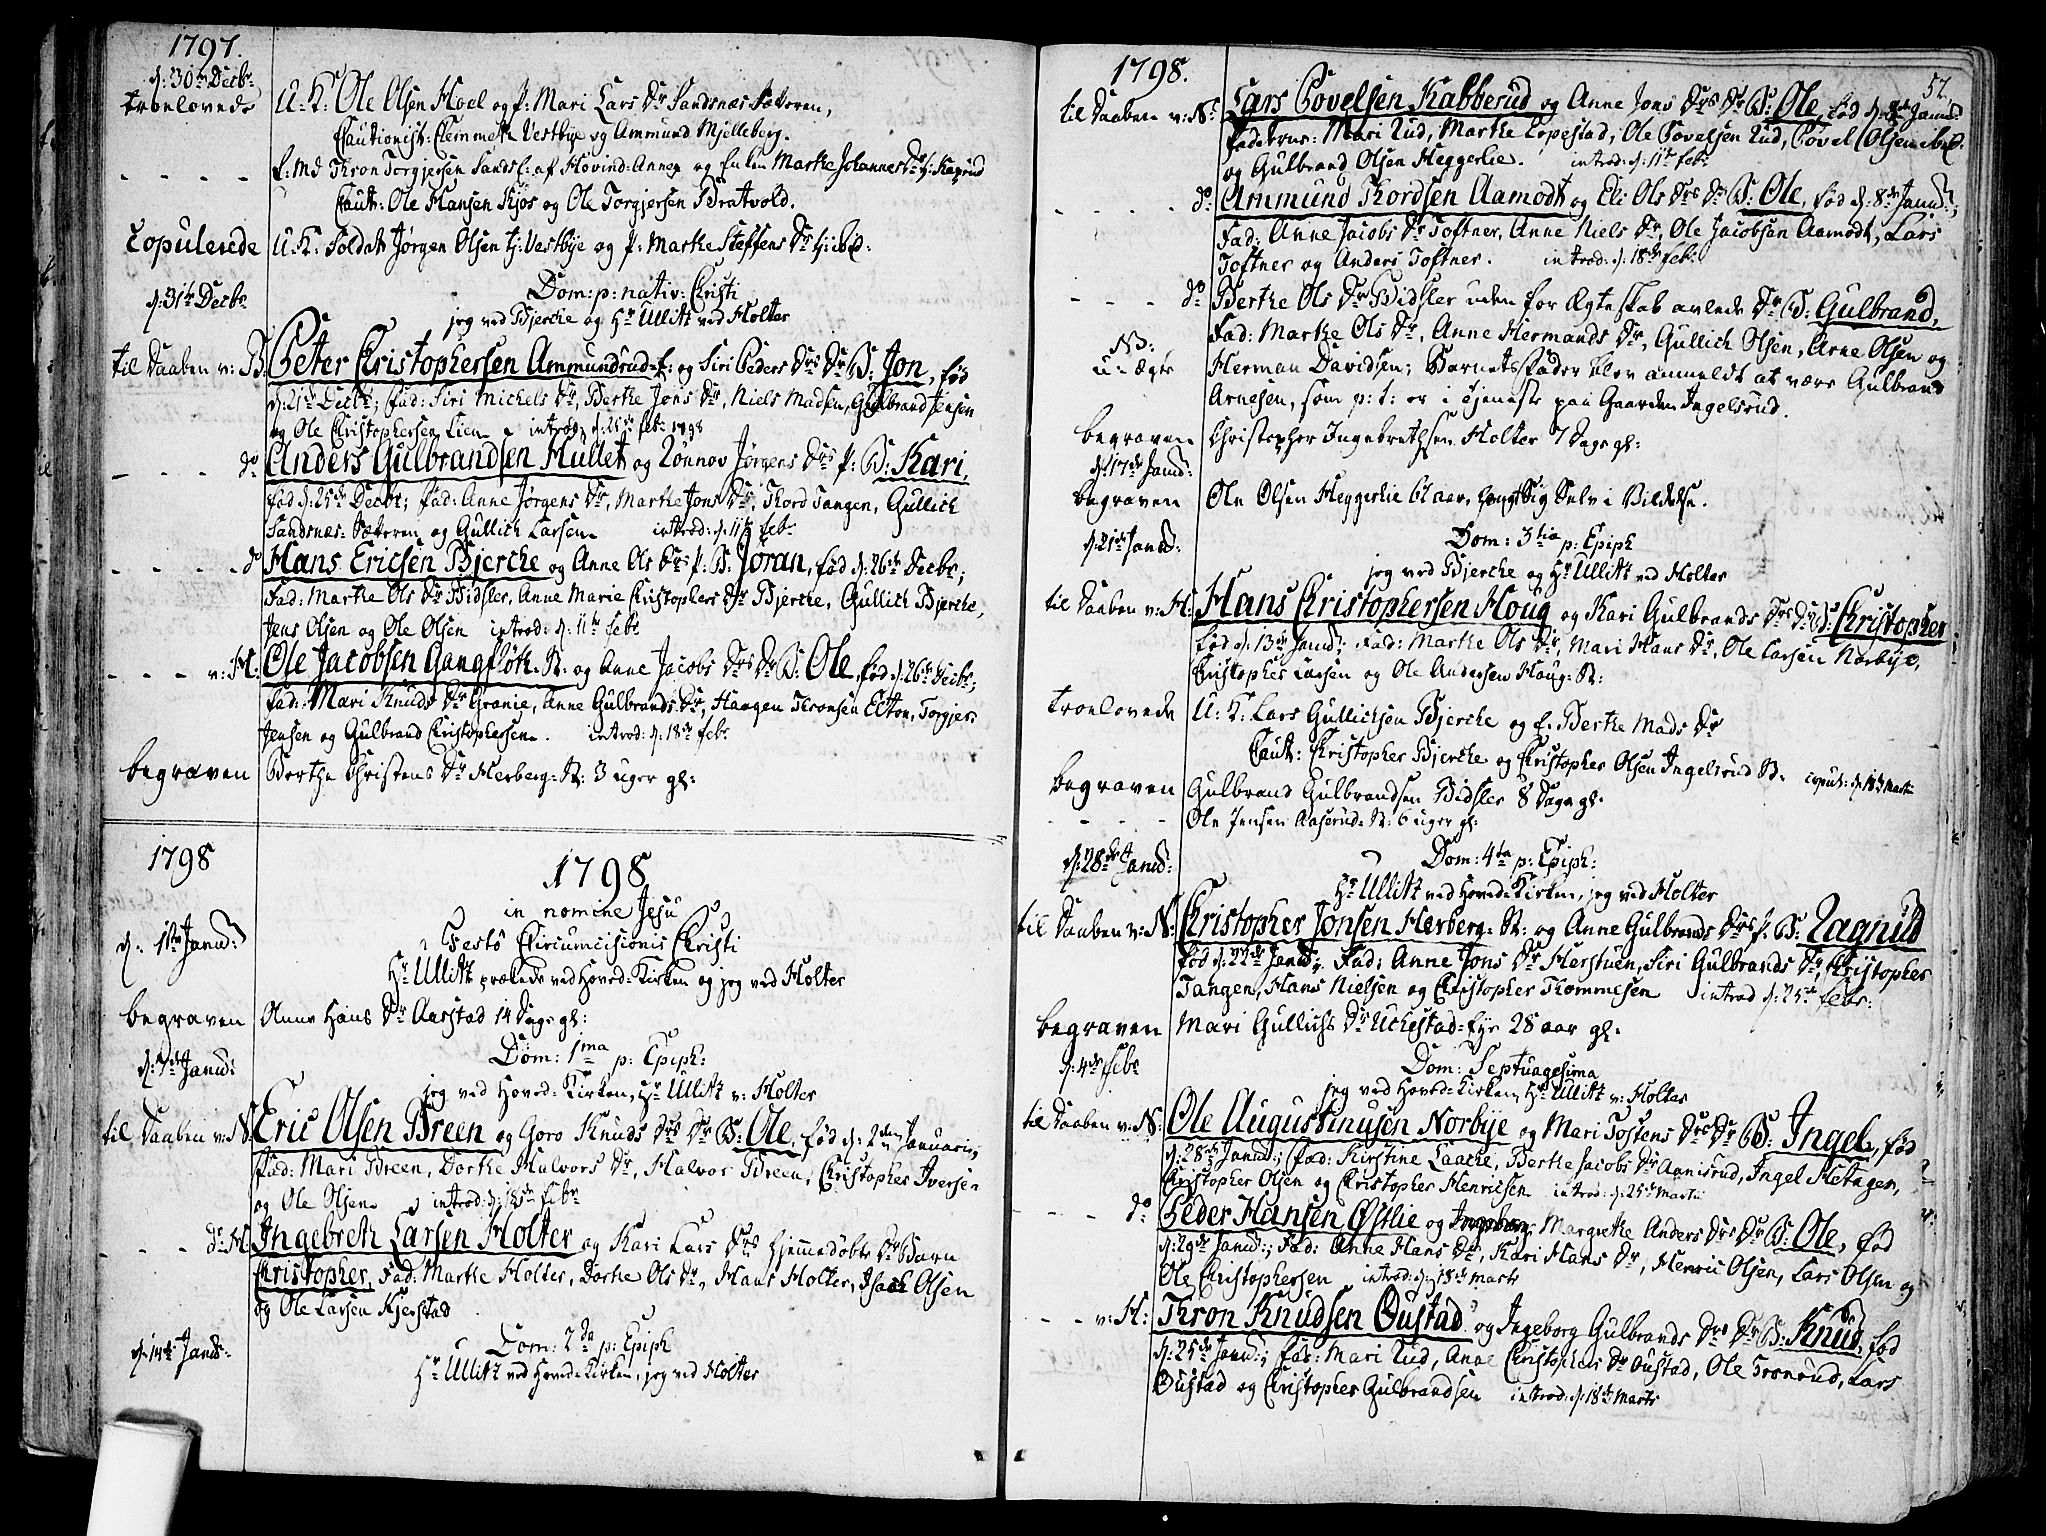 1797.
d: 30te Decbr
troelovede U: K: Ole Olsen Hoel og P: Mari Lars Dr Sandsnæs Sæteren,
Cautionist: Clemmet Vestbye og Ammund Mjelleberg.
E: Md Thron Torgjersen Sands E: af Hovind-Annex og Enken Marthe Johannes Dr
Caut: Ole Hansen Kjos og Ole Torgjersen Bratvold.
Copulerede U: K: Soldat Jørgen Olsen tj: Vestbye og P: Marthe Steffens Dr
d: 31te Decbr Dom: p: nativ: Christi
jeg ved Bjerche og Hr Ullitz ved Holter
til Daaben v: B. Peter Christophersen Ammundrud-E: og Siri Peders Drs Dr B: Jon, fød
d: 21de Decbr; fad: Siri Michels Dr, Berthe Jons Dr, Niels Madsen, Gulbrand Jensen
og Ole Christophersen Lien introd: d: 25de febr 1798
do Anders Gulbrandsen Hullet og Rønnov Jørgens Drs P: B: Kari,
fød d: 25de Decbr; fad: Anne Jørgens Dr, Marthe Jons Dr, Thord Tangen, Gullich
Sandsnæs-Sæteren og Gullich Larsen introd: d: 11te febr
do Hans Ericsen Bjerche og Anne Ols Drs P: B: Joran, fød d: 26de Decbr;
Fad: Marthe Ols Dr Bidsler, Anne Marie Christophers Dr Bjerche, Gullich Bjerche,
Jens Olsen og Ole Olsen introd: d: 11te febr
v: H: Ole Jacobsen Gangfløth-R: og Anne Jacobs Drs Dr B: Ole, fød d: 26de Decbr;
fad: Mari Knuds Dr Granie, Anne Gulbrands Dr, Haagen Thronsen Elton, Torgjer
Jensen og Gulbrand Christophersen. introd: d: 18de febr
begraven Berthe Christens Dr Herberg-R: 3 uger gl:
1798
1798
in nomine Jesu
d: 1ste Janud: Festo Circumcisionis Christi
Hr Ullitz prækede ved Hoved-Kirken og jeg ved Holter
begraven Anne Hans Dr Aarstad 14 Dage gl:
d: 7de Janud: Dom: 1ma p: Epiph:
jeg ved Hoved-Kirken, Hr Ullitz v: Holter
til Daaben v: N. Eric Olsen Breen og Goro Knuds Drs Dr B: Ole, fød d: 2den Januarii;
Fad: Mari Breen, Dorthe Halvors Dr, Halvor Breen, Christopher Iversen
og Ole Olsen introd: d: 18de febr
do H. Ingebreth Larsen Holter og Kari Lars Drs hjemmedøbte Dr Barn
Christopher, Fad: Marthe Holter, Dorthe Ols Dr, Hans Holter, Isach Olsen
og Ole Larsen Kjerstad
d: 14de Janud: Dom: 2da p: Epiph
Hr Ullitz ved Hoved-Kirken, jeg ved Holter
1798.
57.
til Daaben v: N: Lars Povelsen Kabberud og Anne Jons Drs Dr B: Ole, fød d: Janud:
Fadderne: Mari Rud, Marthe Lopestad, Ole Povelsen Rud, Povel Olsen ibid:
og Gulbrand Olsen Heggerlie. introd: d: 11te febr
do Ammund Thordsen Aamodt og Eli Ols Drs Dr B: Ole, fød d: 8de Janud:;
Fad: Anne Jacobs Dr Toftner, Anne Niels Dr, Ole Jacobsen Aamodt, Lars
Toftner og Anders Toftner. introd: d: 18de febr
do Berthe Ols Dr Bidsler uden for Ægteskab avlede Dr B: Gulbrand,
NB: u-ægte Fad: Marthe Ols Dr, Anne Hermands Dr, Gullich Olsen, Arne Olsen og
Herman Davidsen; Barnets Fader blev anmeldt at være Gulbrand
Arnesen, som p: t: er i tjeneste paa Gaarden Ingelsrud.
begraven Christopher Ingebrethsen Holter 7 Dage gl:
d: 17de Janud:
begraven Ole Olsen Heggerlie 61 aar, Sig Selv i Vildelse.
d: 21de Janud: Dom: 3tia p: Epiph
jeg ved Bjerche og Hr Ullitz ved Holter
til Daaben v: H: Hans Christophersen Houg og Kari Gulbrands Drs Dr B: Christopher
fød d: 13de Janud; Fad: Marthe Ols Dr, Mari Hans Dr, Ole Larsen Norbye,
Christopher Larsen og Ole Andersen Houg-R:
troelovede U: K: Lars Gullichsen Bjerche og E: Berthe Mads Dr
Caut: Christopher Bjerche og Christopher Olsen Ingelsrud R. copul: d: 18de Marti
begraven Gulbrand Gulbrandsen Bidsler 8 Dage gl.
Ole Jensen Aaserud-R: 6 uger gl:
d: 28de Janud: Dom: 4ta p: Epiph:
Hr Ullitz ved Hoved-Kirken, jeg ved Holter
til Daaben v: N: Christopher Jonsen Herberg-R: og Anne Gulbrands Drs P. B: Ragnild
fød d: 22de Janud:, Fad: Anne Jons Dr Herstuen, Siri Gulbrands Dr, Christopher
Tangen, Hans Nielsen og Christopher Thommesen introd d: 25de febr:
begraven Mari Gullichs Dr Uchestad-Eye 28 aar gl.
d: 4de febr Dom: Septuagesima
jeg ved Hoved-Kirken, Hr Ullitz v: Holter
til Daaben v: N: Ole Augustinusen Norbye og Mari Tostens Drs Dr B: Ingel, fød
d: 28de Janud:; fad: Kirstine Laache, Berthe Jacobs Dr Aamisrud, Ingel Hetager,
Christopher Olsen og Christopher Henricsen introd: d: 25de Martii
do Peder Hansen Østlie og Margrethe Anders Drs Dr B: Ole, fød
d: 29de Janud:; Fad: Anne Hans Dr, Kari Hans Dr, Henric Olsen, Lars Olsen og
Ole Christophersen introd: d: 18de Marts
v: H: Thron Knudsen Oustad og Ingeborg Gulbrands Drs Dr B: Knud, fød
d: 25de Janud:; fad: Mari Rud, Anne Christophers Dr Oustad, Ole Tronrud, Lars
Oustad og Christopher Gulbrandsen introd: d: 18de Marts